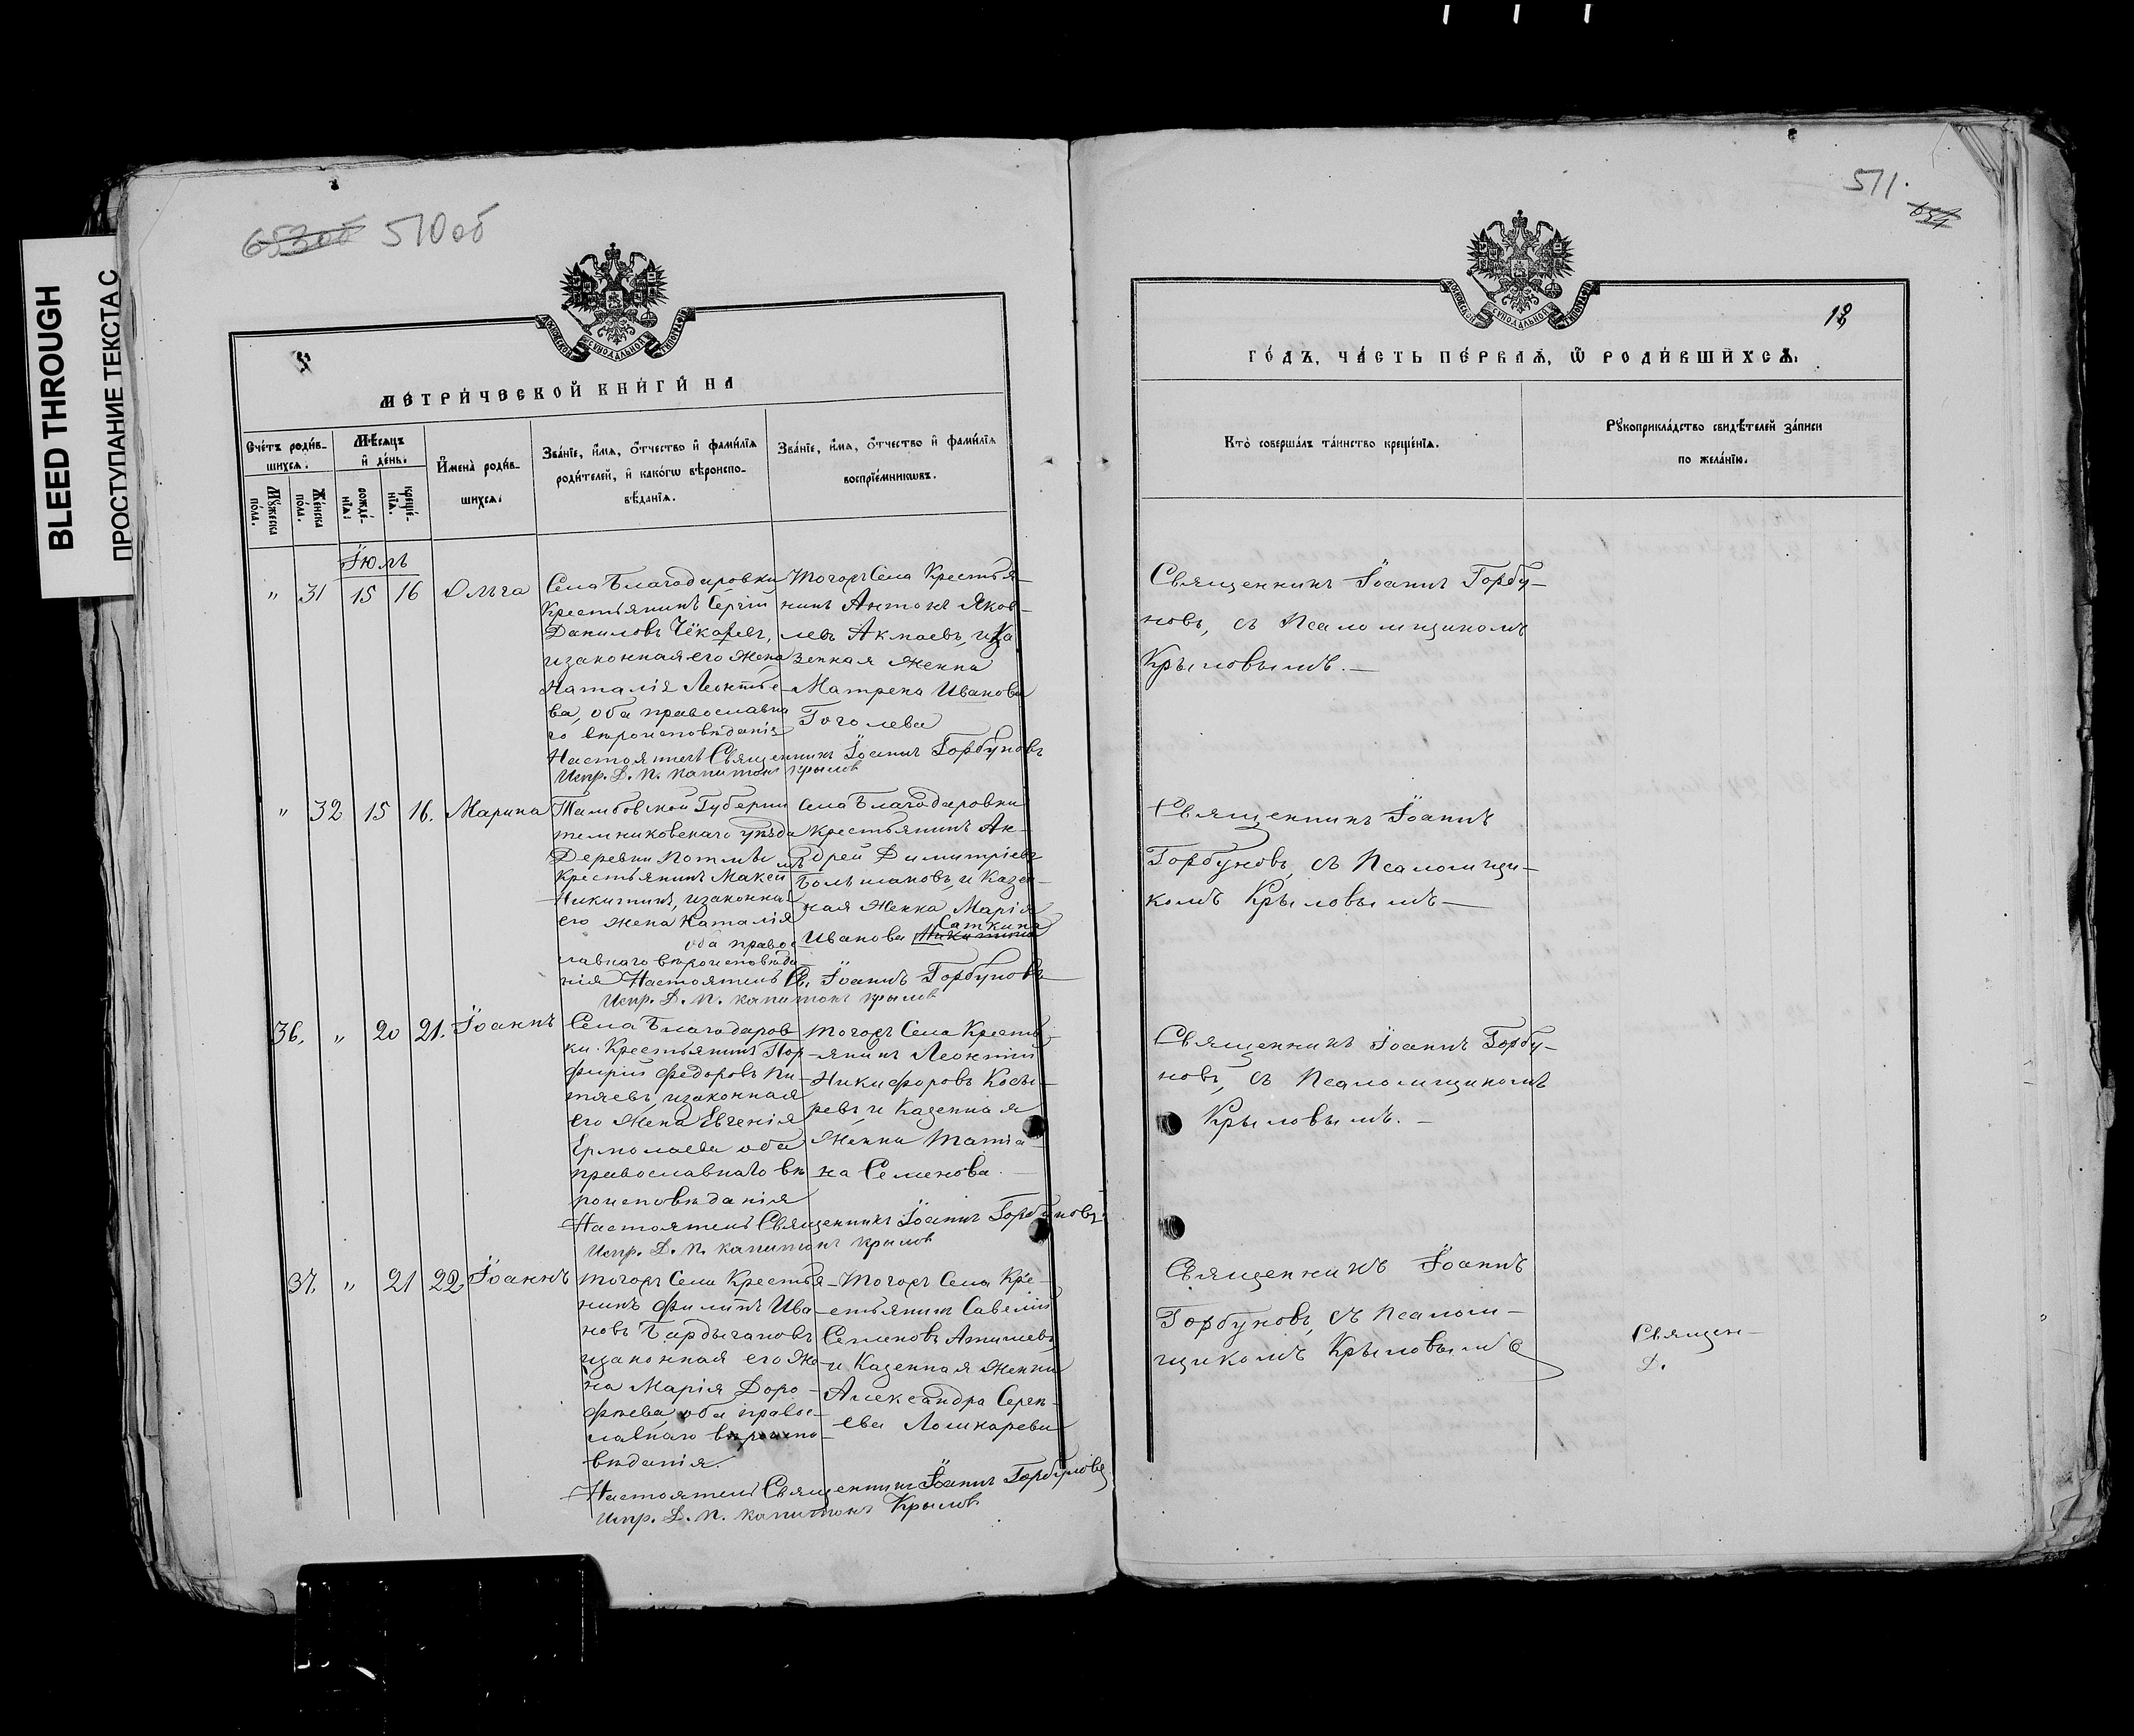 BLEED THROUGH
ПРОСТУПАНИЕ ТЕКСТА С
653об 510об
МЕТРИЧЕСКОЙ КНИГИ НА
Счетъ родив-
шихся.
Мѣсяцъ
и день.
Имена родив-
шихся.
Званіе, имя, отчество и фамилія
родителей, и какогω вѣроиспо-
вѣданія.
Званіе, имя, отчество и фамилія
воспріемниковъ.
Мужеска пола.
Женска пола.
рожде-
нія.
креще-
нія.
Іюль
" 31 15 16 Ольга
Села Благодаровки
Крестьянинъ Сергій
Даниловъ
и законная его жена
Наталія Леонтье-
ва, оба православна
го вѣроисповѣданія
Тогожъ Села Крестья-
нинъ Антонъ Яков-
левъ Акмаевъ, и Ка
зенная женка
Матрена Иванова
Гоголева
Настоятель Священникъ Іоаннъ Горбуновъ
Испр. Д. П. Капитонъ Крыловъ
" 32 15 16. Марина
Тамбовской Губерніи
темниковскаго уѣзда
Деревни Потмы
Крестьянинъ Макей
Никитинъ, и законная
его жена Наталія
оба правос
лавнаго вѣроисповѣда
нія
села Благодаровки
Крестьянинъ Ан-
дрей Димитріевъ
Большаковъ, и Казен-
ная женка Марія
Иванова Саткина
Настоятель Св. Іоаннъ Горбуновъ
Испр. Д. П. Капитонъ Крыловъ
36. " 20 21. Іоаннъ
Села Благодаров
ки Крестьянинъ Пор-
фирій Федоровъ Пи-
тяевъ, и законная
его жена Евгенія
Ермолаева оба
православнаго вѣ
роисповѣданія
тогожъ Села Кресть
янинъ Леонтій
Никифоровъ Косы-
ревъ и Казенная
женка Татіа-
на Семенова.
Настоятель Священникъ Іоаннъ Горбуновъ
Испр. Д. П. Капитонъ Крыловъ
37. " 21 22 Іоаннъ
тогожъ Села Крестья-
нинъ Филипъ Ива-
новъ Бардыгановъ
и законная его же-
на Марія Доро-
фѣева, оба правос-
лавнаго вѣроиспо-
вѣданія.
Тогожъ Села Кре-
стьянинъ Савелій
Семеновъ
и Казенная женка
Александра Сергѣ-
ева Лошкарева
Настоятель Священникъ Іоаннъ Горбуновъ
Испр. Д. П. Капитонъ Крыловъ
511.
654
12
ГОДЪ, ЧАСТЬ ПЕРВАЯ, Ѿ РОДИВШИХСЯ.
Кто совершалъ таинство крещенія.
Рукоприкладство свидѣтелей записи
по желанію.
Священникъ Іоаннъ Горбу-
новъ, съ Псаломщикомъ
Крыловымъ.
Священникъ Іоаннъ
Горбуновъ, съ Псаломщи-
комъ Крыловымъ
Священникъ Іоаннъ Горбу-
новъ, съ Псаломщикомъ
Крыловымъ.
Священникъ Іоаннъ
Горбуновъ, съ Псалом-
щикомъ Крыловымъ
Священ-
Д.